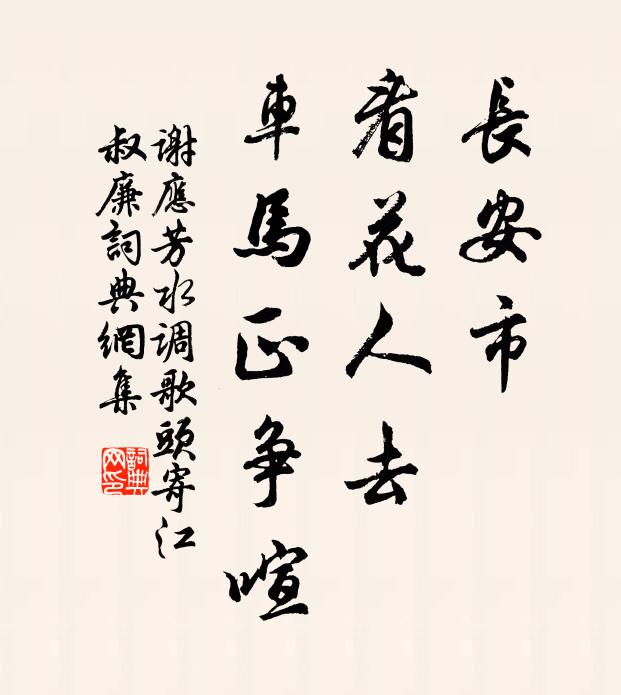 長安市
看花人去
車馬正争喧
謝應芳水调歌頭寄江
叔廉詞典網集
詞典
网印